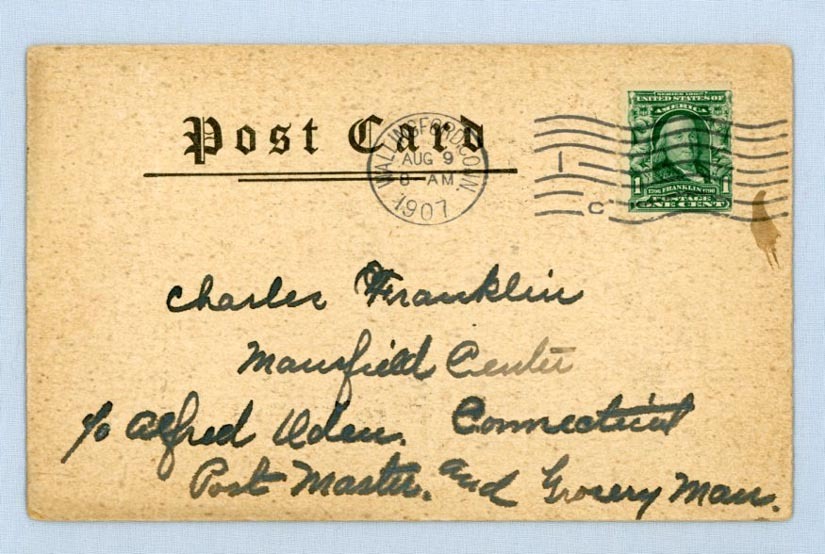 Post Card
WALLINGFORD, CONN.
AUG 9
8 - AM
1907
1
C
SERIES 1902
UNITED STATES OF
AMERICA
1706 FRANKLIN 1790
1 1
POSTAGE
ONE CENT
Charles Franklin
Mansfield Center
c/o Alfred Olden. Connecticut
Post Master. and Grocery Man.